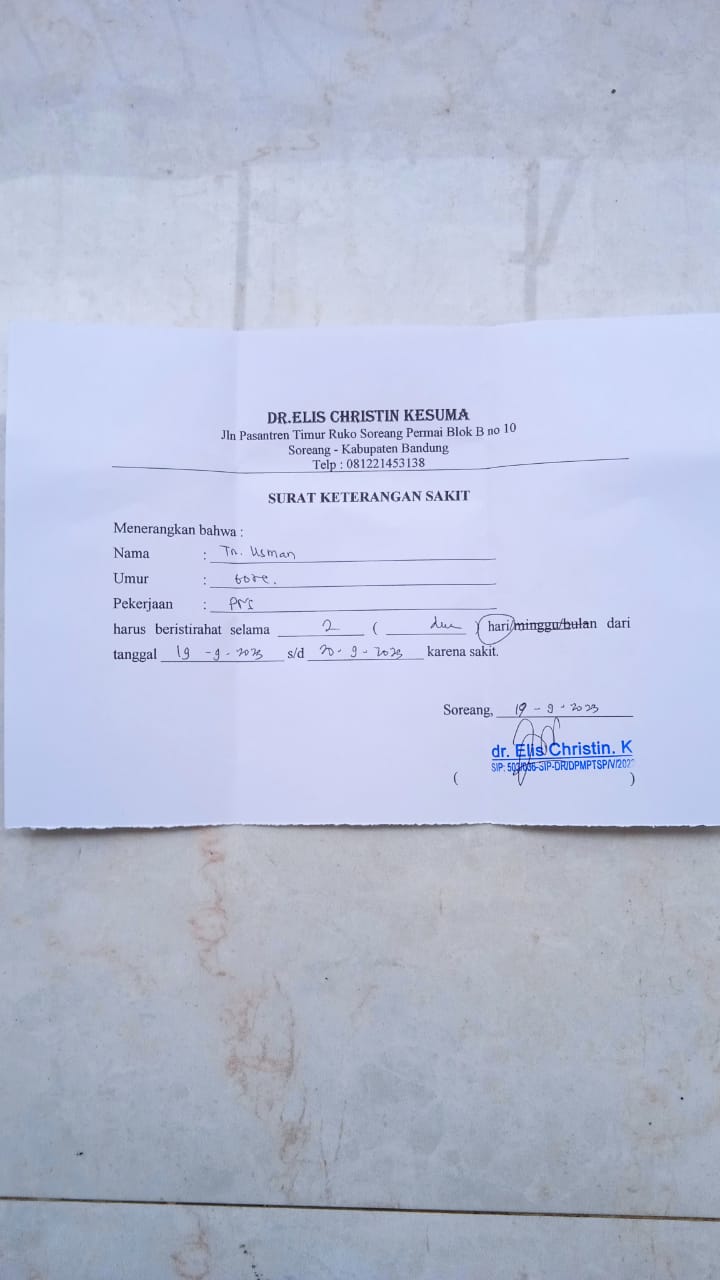 DR.ELIS CHRISTIN KESUMA
Jln Pasantren Timur Ruko Soreang Permai Blok B no 10
Soreang - Kabupaten Bandung
Telp : 081221453138
SURAT KETERANGAN SAKIT
Menerangkan bahwa :
Nama : Tn. Usman
Umur :
Pekerjaan : PNS
harus beristirahat selama 2 ( dua ) hari/minggu/bulan dari
tanggal 19 - 9 - 2023 s/d 20 - 9 - 2023 karena sakit.
Soreang, 19 - 9 - 2023
dr. Elis Christin. K
( )